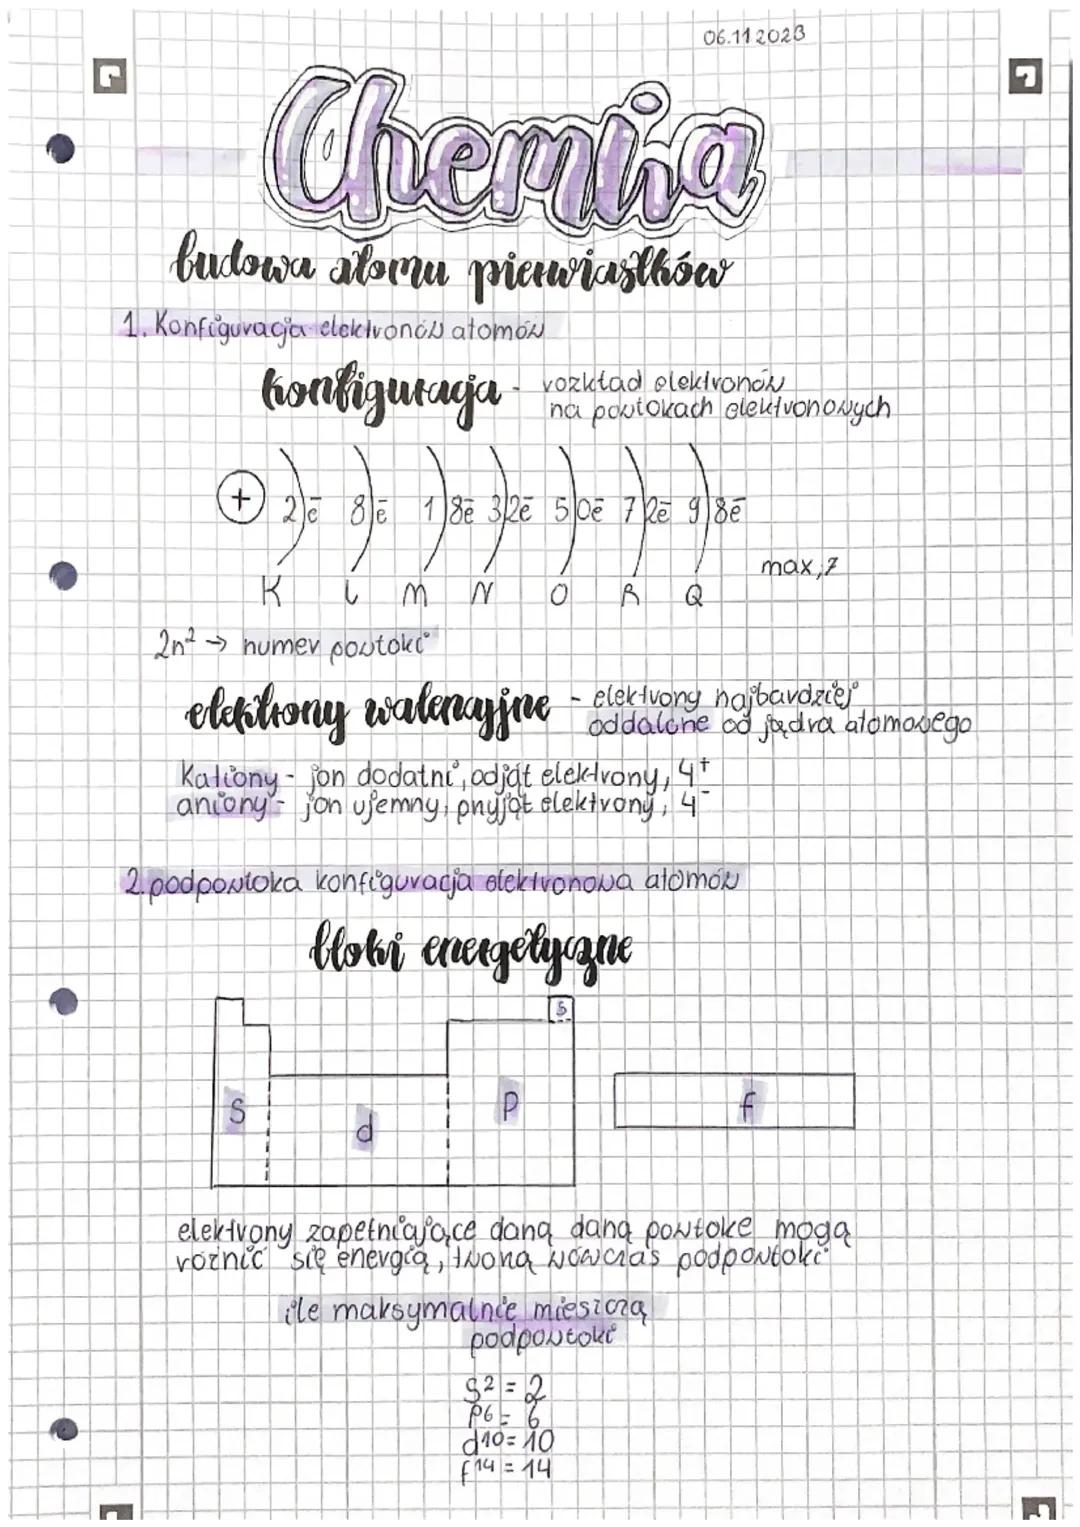 06.11 2023
Chemia
budowa atomu pierwiastków
1. Konfiguracja elektronów atomów
konfiguracja - rozkład elektronów
na powłokach elektronowych
+ 2)ē 8)ē 1)8ē 3)2ē 5)0ē 7)2ē 9)8ē
max,7
K L M N O P Q
2n² → numer powłoki
elektrony walencyjne - elektrony najbardziej
oddalone od jądra atomowego
Kationy - jon dodatni, odjąt elektrony, 4⁺
aniony - jon ujemny, przyjąt elektrony, 4⁻
2. podpowłoka konfiguracja elektronowa atomów
bloki energetyczne
s
S
d
p
f
elektrony zapełniające daną daną powłoke mogą
roznić się energią, tworzą wówczas podpowłoki
ile maksymalnie mieszczą
podpowłoki
S² = 2
P⁶ = 6
d¹⁰ = 10
f¹⁴ = 14